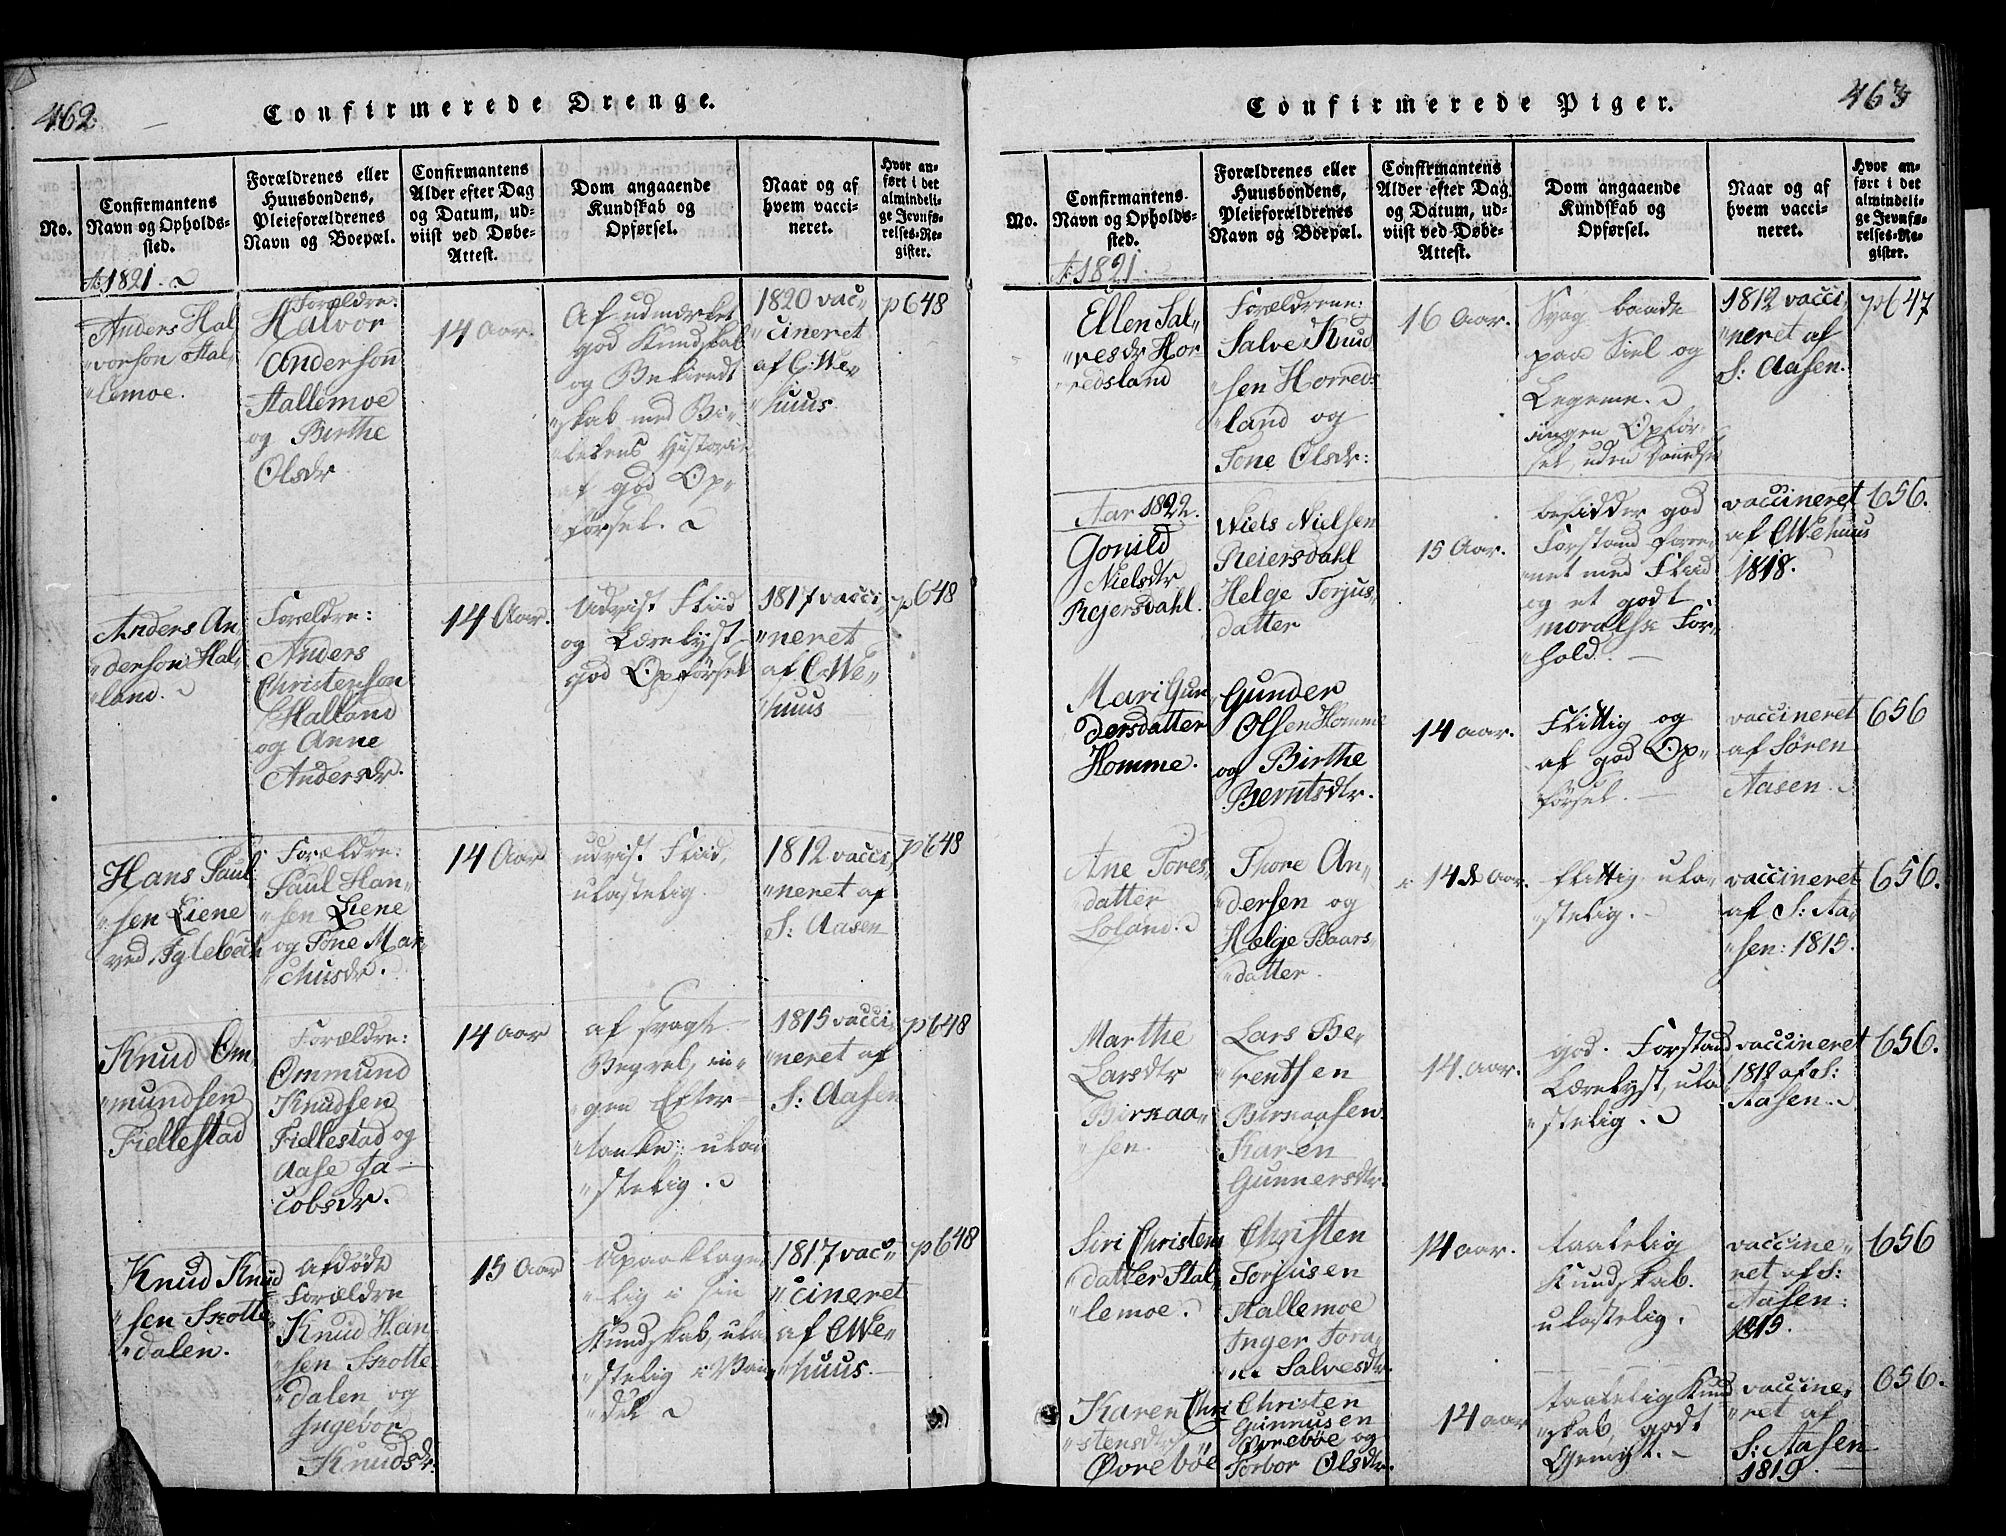 462.
Confirmerede Drenge.
No.
Confirmantens
Navn og Opholds-
sted.
Forældrenes eller
Huusbondens,
Pleieforældrenes
Navn og Boepæl.
Confirmantens
Alder efter Dag
og Datum, ud-
viist ved Døbe-
Attest.
Dom angaaende
Kundskab og
Opførsel.
Naar og af
hvem vacci-
neret.
Hvor an-
ført i det
almindeli-
ge Jevnfø-
relses-Re-
gister.
Ao 1821.
Anders Hal
vorson Stal
lemoe.
Forældre:
Halvor
Anderson
Stallemoe
og Birthe
Olsdr
14 Aar.
Af udmerket
god Kundskab
og Bekiendt
skab med Bi-
belens Historie
af god Op-
førsel.
1820 vac-
cineret
af C: We-
huus
p 648
Anders An
derson Hal
land.
Forældre:
Anders
Christenson
Halland
og Anne
Andersdr.
14 Aar.
Udvist Fliid
og Lærelyst
god Opførsel
1817 vacci
neret
af C We-
huus
p 648
Hans Paul
sen Liene
ved Iglebek
Forældre:
Paul Han-
sen Liene
og Tone Mar
chusdr.
14 Aar
udvist Fliid,
ulastelig.
1812 vacci
neret af
S: Aasen
p 648
Knud Om
mundsen
Fiellestad
Forældre:
Ommund
Knudsen
Fiellestad og
Aase Ja-
cobsdr.
14 Aar
af svagt
Begreb, in-
gen Efter-
tanke; ula
stelig.
1815 vacci
neret af
S: Aasen
p 648
Knud Knud
sen Skotte
dalen.
Afdøde
Forældre
Knud Han
sen Skotte
dalen og
Ingebor
Knudsdr.
15 Aar
Upaaklage
lig i sin
Kundskab, ula
stelig i Van
del
1817 vac
cineret
af C We-
huus.
p 648
463
Confirmerede Piger.
No.
Confirmantens
Navn og Opholds-
sted.
Forældrenes eller
Huusbondens,
Pleieforældrenes
Navn og Boepæl.
Confirmantens
Alder efter Dag
og Datum, ud-
viist ved Døbe-
Attest.
Dom angaaende
Kundskab og
Opførsel.
Naar og af
hvem vacci-
neret.
Hvor an-
ført i det
almindeli-
ge Jevnfø-
relses-Re-
gister.
Ao 1821.
Ellen Sal
vesdr Hor
redsland
Forældrene:
Salve Knud
sen Horreds
land og
Tone Olsdr:
16 Aar.
Svag baade
paa Siel og
Legeme.
ingen Opfør
sel, uden
1812 vacci
neret af
S: Aasen.
p 647
Aar 1822.
Gonild
Nielsdtr
Rejersdahl.
Niels Nielsen
Reiersdahl
Helge Torjus
datter
15 Aar.
besidder god
Forstand fore
net med Fliid
og et godt
moralsk For-
hold.
vaccineret
af C Wehuus
1818.
656.
Mari Gun
dersdatter
Homme.
Gunder
Olsen Homme
og Birthe
Berntsdtr.
14 aar.
Flittig og
af god Op-
førsel.
vaccineret
af Søren
Aasen.
656
Ane Tores
datter
Loland.
Thore An-
dersen og
Helge Baars-
datter.
14 Aar.
flittig, ula-
stelig.
vaccineret
af S: Aa-
sen: 1815.
656.
Marthe
Larsdtr
Birkaa-
sen.
Lars Be-
rentsen
Birkaasen
Karen
Gunnersdtr.
14. aar.
god Forstand
Lærelyst, ula
stelig.
vaccineret
1812 af S:
Aasen.
656.
Siri Christens
datter Stal
lemoe.
Christen
Torjusen
Stallemoe
Inger Tora
ne Salvesdtr
14 aar.
taalelig
Kundskab.
ulastelig.
vaccine-
ret af S:
Aasen:
1815.
656
Karen Chri
stensdtr
Øvrebøe
Christen
Gunnusen
Øvrebøe og
Torbor Olsdtr.
14 aar
taalelig Kund
skab, godt
Gemyt.
vaccine
ret af
S: Aasen
1819.
656.